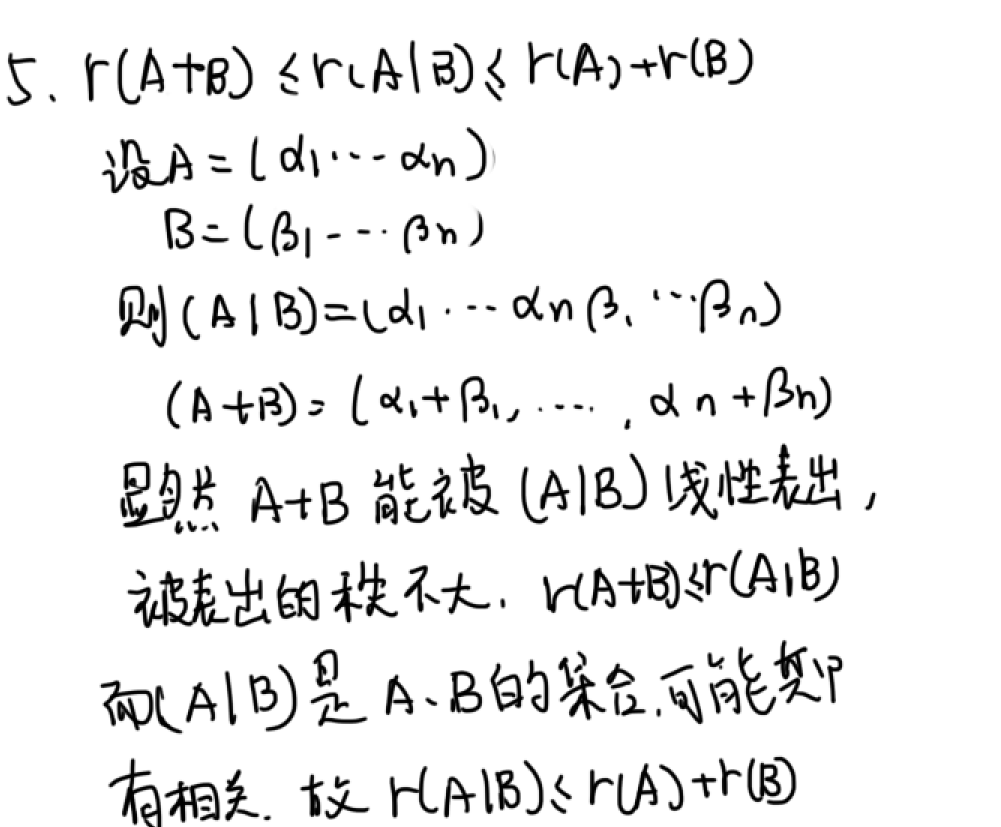 5. r(A+B) ≤ r(A|B) ≤ r(A)+r(B)
设A=(α1⋯αn)
B=(β1⋯βn)
则(A|B)=(α1⋯αn β1⋯βn)
(A+B)=(α1+β1,⋯,αn+βn)
显然 A+B 能被 (A|B) 线性表出,
被表出的秩不大. r(A+B)≤r(A|B)
而(A|B)是 A、B的集合.可能其中
有相关. 故 r(A|B)≤r(A)+r(B)